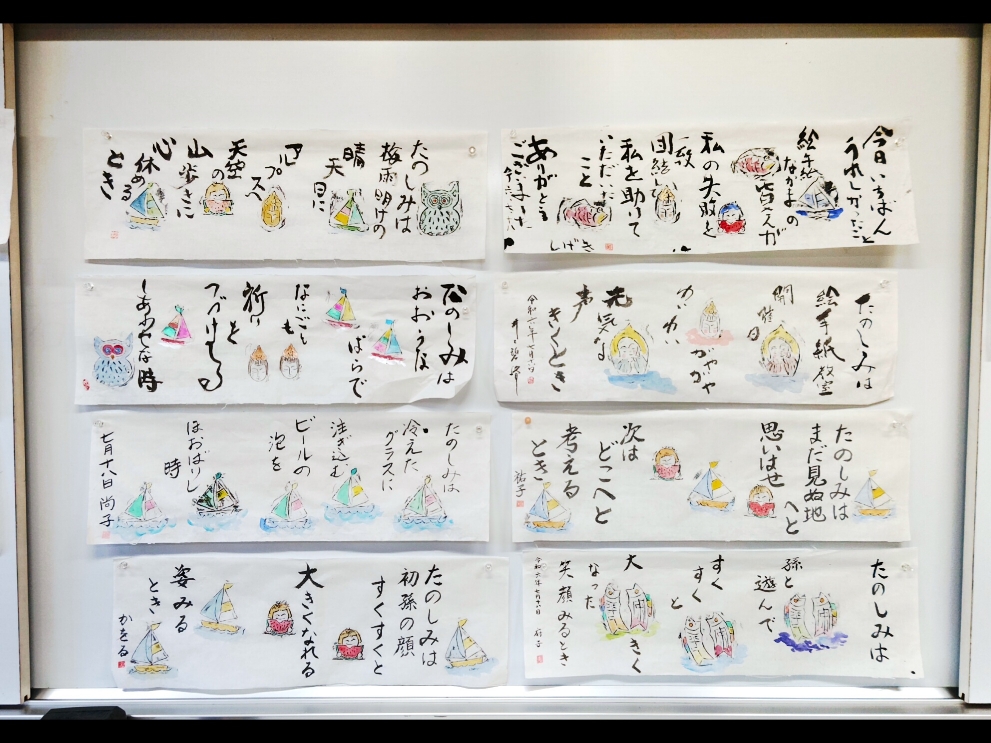 今日いちばん
うれしかったこと
絵手紙
なかまの
皆さんが
私の失敗を
一致
団結し
私を助けて
いただいた
こと
ありがとう
ございました
しげき
たのしみは
梅雨明けの
晴天
日に
アルプスへ
天空の
山歩きに
心
休める
とき
たのしみは
絵手紙教室
開催日
がやがや
わいわい
元気な
声
きくとき
たのしみは
おおらかな
なにごとも
祈りを
つづける
しあわせな時
たのしみは
まだ見ぬ地
へと
思いはせ
次は
どこへと
考える
とき
祐子
たのしみは
冷えた
グラスに
注ぎ込む
ビールの
泡を
ほおばりし
時
七月十八日 尚子
たのしみは
孫と
遊んで
すく
すくと
大きく
なった
笑顔みるとき
たのしみは
初孫の顔
すくすくと
大きくなれる
姿みる
とき
かをる